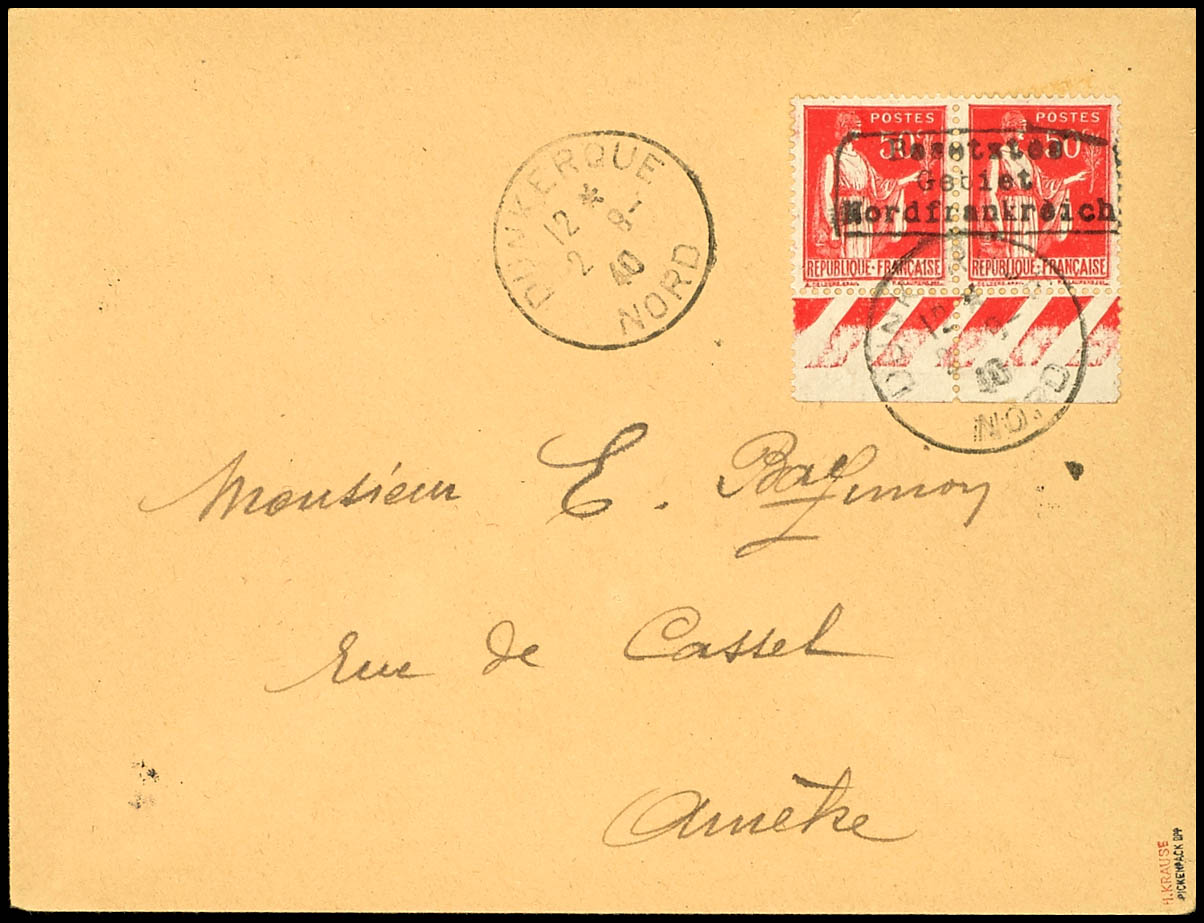 DUNKERQUE
12 * 1-
2 8
40
NORD
POSTES POSTES
50c 50c
Besetztes
Gebiet
Nordfrankreich
REPUBLIQUE-FRANÇAISE REPUBLIQUE-FRANÇAISE
DUNK
12 *
40
NORD
Monsieur E.
Rue de Cassel
Arnèke
H.KRAUSE
PICKENPACK BPP